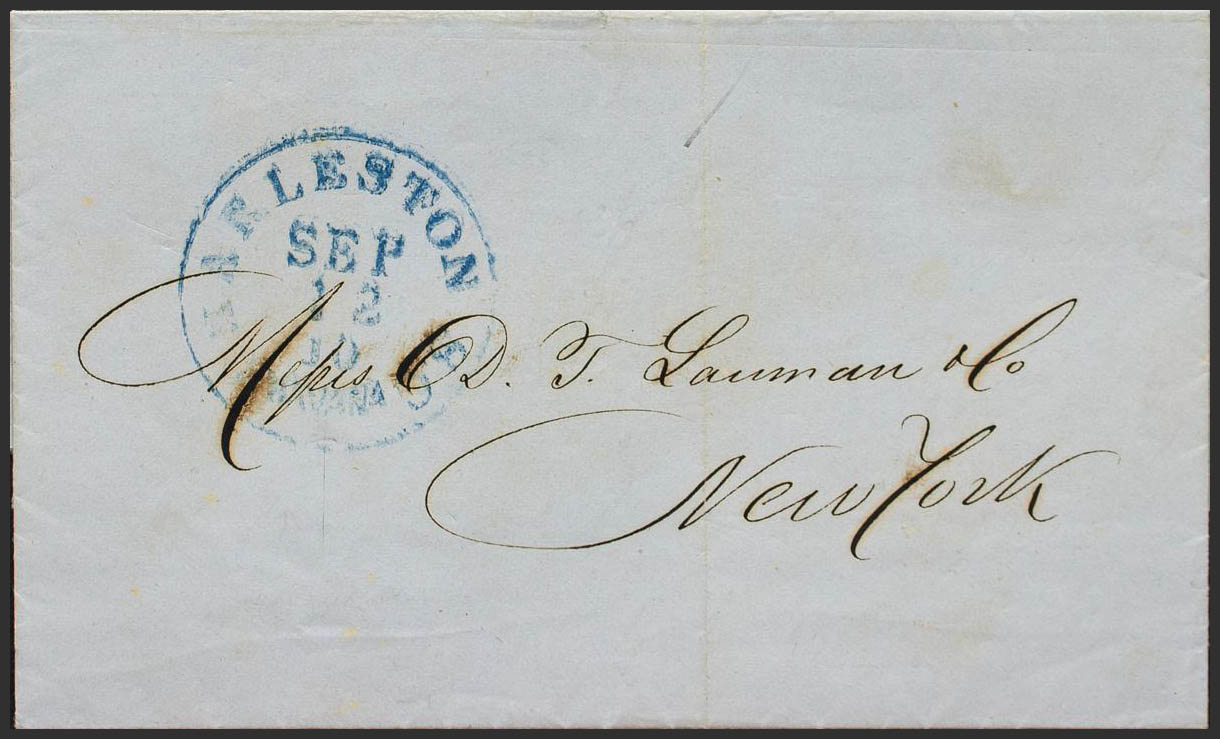 CHARLESTON
SEP
12
10
S.C.
Messrs D. T. Lanman & Co
New York